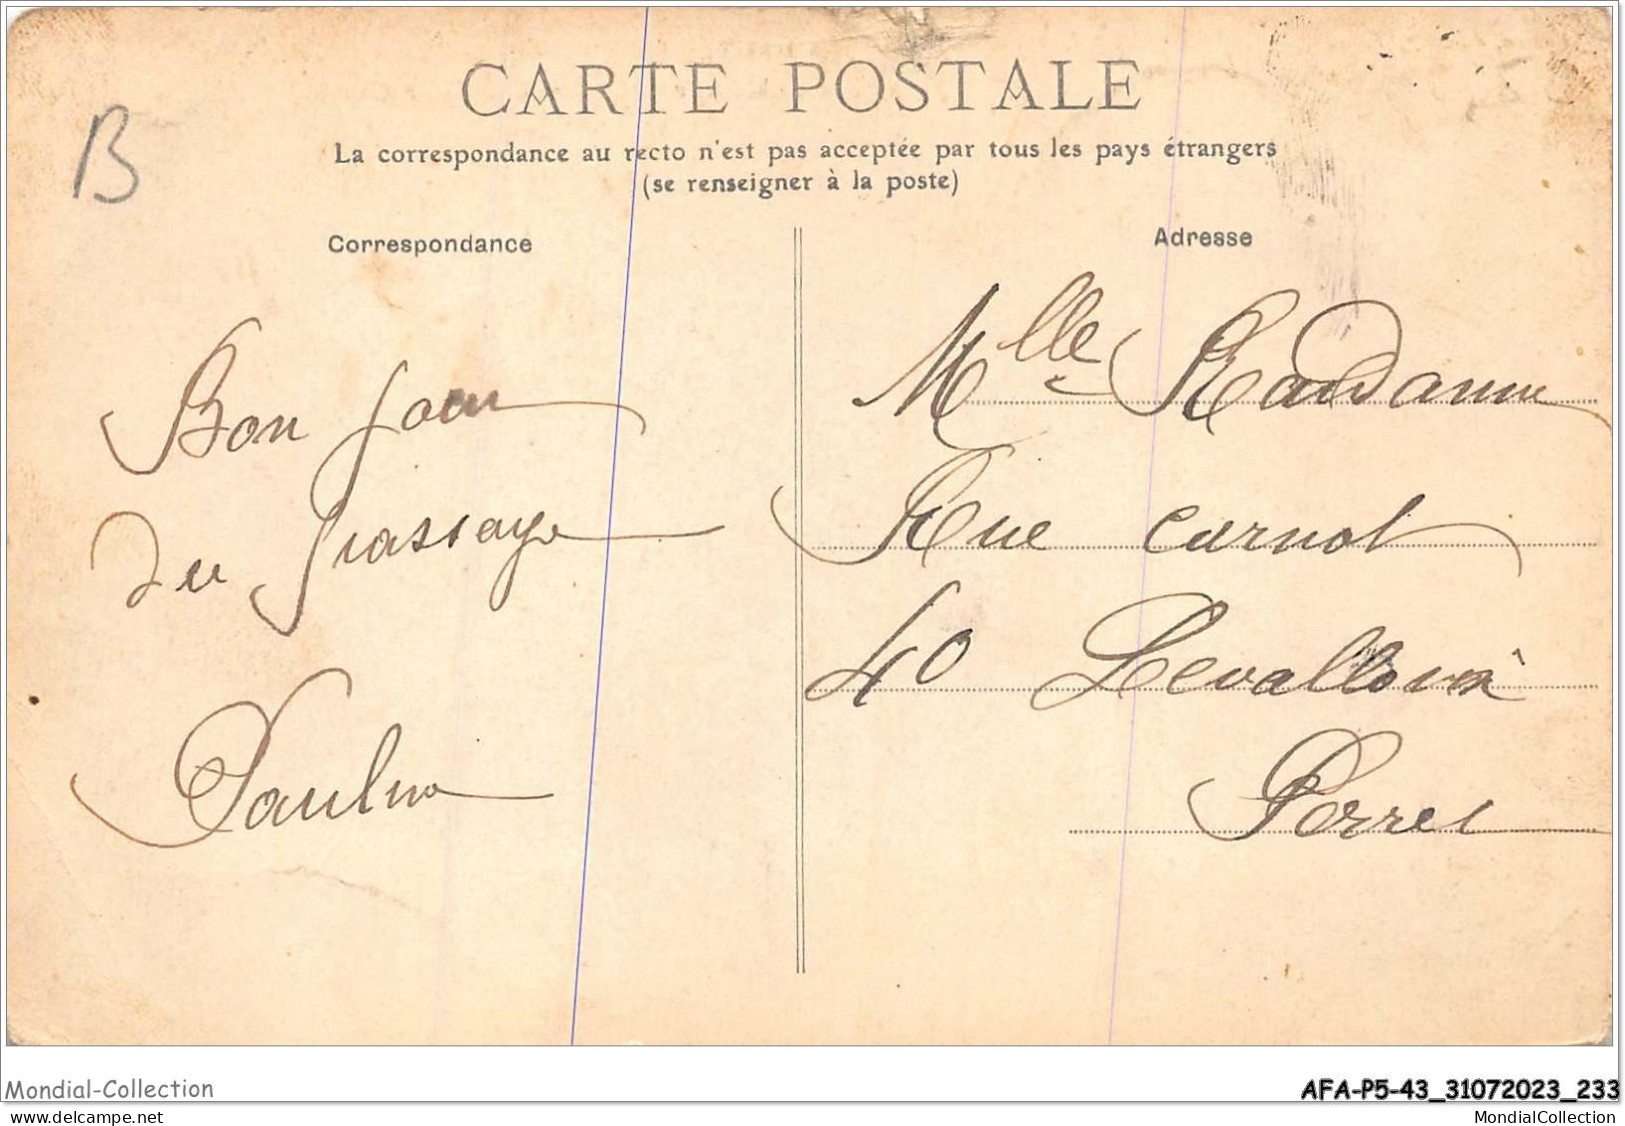 CARTE POSTALE
La correspondance au recto n'est pas acceptée par tous les pays étrangers
(se renseigner à la poste)
B
Correspondance
Bon jour
du passage
Paulin
Adresse
Mlle Randanne
Rue Carnot
40 Levallois
Perret
Mondial-Collection
AFA-P5-43_31072023_233
www.delcampe.net
MondialCollection